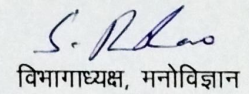 S. R Rao
विभागाध्यक्ष, मनोविज्ञान